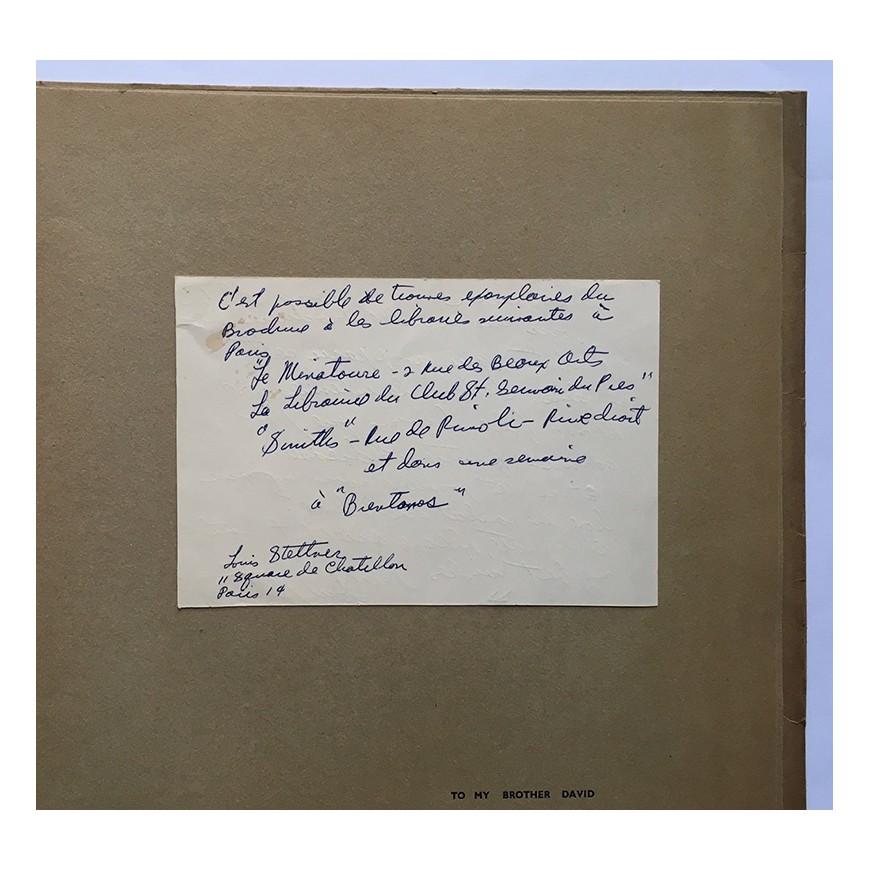 C'est possible de trouver exemplaires du
Brochure à les libraries suivantes à
Paris
"Le Minotaure - 2 Rue des Beaux Arts
La Librairie du Club St. Germain du Pres"
"Smiths" - Rue de Rivoli - Rive droit
et dans une semaine
à "Brentanos"
Louis Stettner
11 Square de Chatillon
Paris 14
TO MY BROTHER DAVID